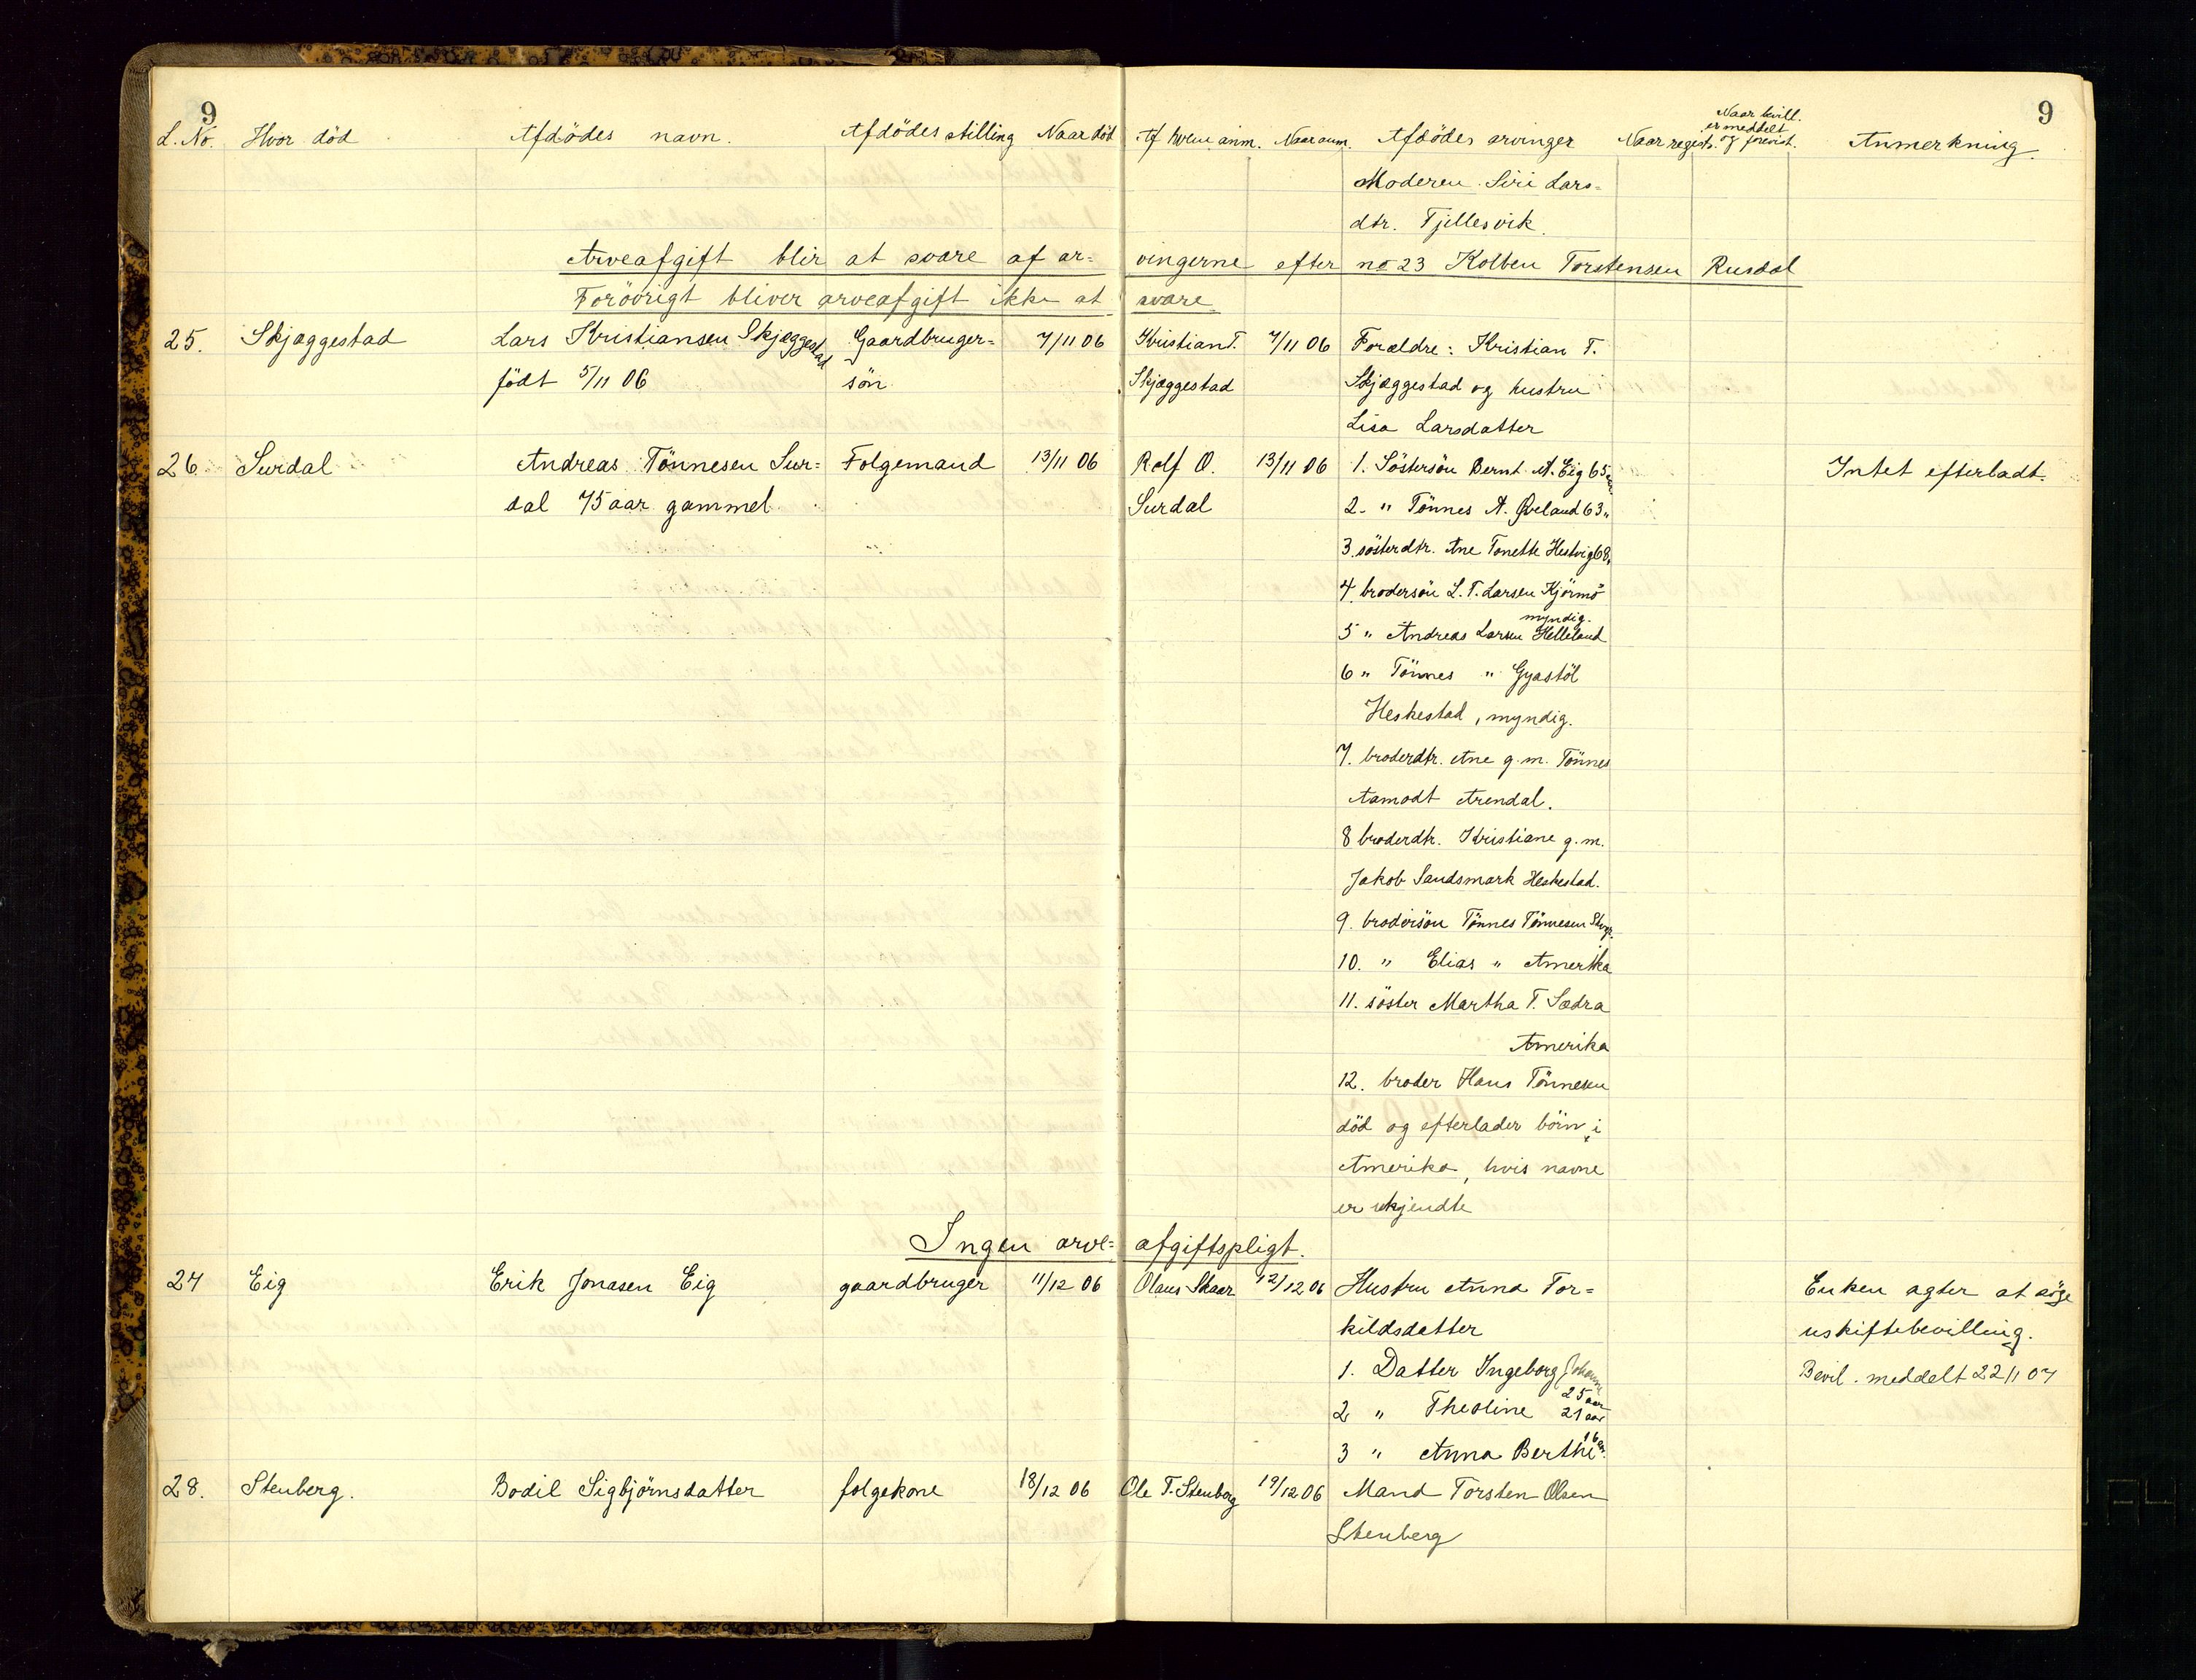 9
9
L. No. Hvor död Afdödes navn. Afdödes stilling Naar död Af hvem anm. Naar anm. Afdödes arvinger Naar regist. Naar bevill. er meddelt og forevist. Anmerkning.
Moderen Siri Lars=
dtr. Fjellesvik.
Arveafgift blir at svare af ar= vingerne efter no 23 Kolben Torstensen Rusdal
Forövrigt bliver arveafgift ikke at svare.
25. Skjæggestad Lars Kristiansen Skjæggestad Gaardbruger= 7/11 06 Kristian T. 7/11 06 Forældre: Kristian T.
födt 5/11 06 sön Skjæggestad Skjæggestad og hustru
Lisa Larsdatter
26. Surdal Andreas Tönnesen Sur= Folgemand 13/11 06 Rolf O. 13/11 06 1. Söstersön Bernt A. Eig 65 aar Intet efterladt.
dal 75 aar gammel Surdal 2. " Tönnes A. Øveland 63 "
3. sösterdtr. Ane Tonette Hestvig 68 "
4. brodersön L. T. Larsen Kjörmo
myndig.
5 " Andreas Larsen Helleland
6 " Tönnes " Gyastöl
Heskestad, myndig.
7. broderdtr. Ane g. m. Tönnes
Aamodt Arendal.
8 broderdtr. Kristiane g. m.
Jakob Sandsmark Heskestad.
9. brodersön Tönnes Tönnesen
10. " Elias " Amerika
11. söster Martha T. Sædra
Amerika
12. broder Hans Tönnesen
död og efterlader börn i
Amerika, hvis navne
er ukjendte
Ingen arve= afgiftspligt.
27 Eig Erik Jonasen Eig gaardbruger 11/12 06 Olaus Skaar 12/12 06 Hustru Anna Tor= Enken agter at söge
kildsdatter uskiftebevilling.
1. Datter Ingeborg Johanne 25 aar Bevil. meddelt 22/1 07
2 " Theoline 21 aar
3 " Anna Berthe 16 aar.
28. Stenberg. Bodil Sigbjörnsdatter folgekone 18/12 06 Ole T. Stenberg 19/12 06 Mand Torsten Olsen
Stenberg